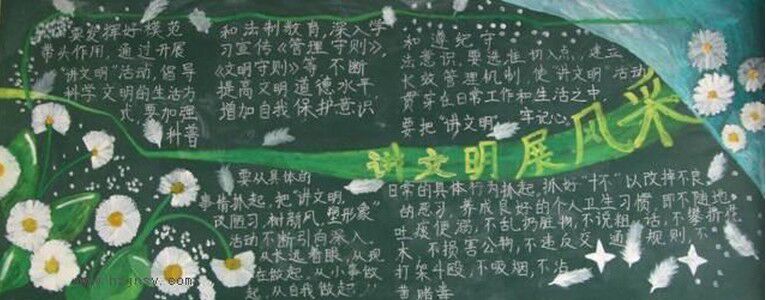 要发挥好模范
带头作用，通过开展
“讲文明”活动，倡导
科学文明的生活方
式，要加强
科普
和法制教育，深入学
习宣传《管理守则》，
《文明守则》等，不断
提高文明道德水平
增加自我保护意识
和遵纪守
法意识，要选准切入点，建立
长效管理机制，使“讲文明”活动
贯穿在日常工作和生活之中
要把“讲文明”牢记心
讲文明展风采
要从具体的
事情抓起，把“讲文明，
改陋习，树新风，塑形象”
活动不断引向深入，
从本远着眼，从现
在做起，从小事做
起，从自我做起
日常的具体行为抓起，抓好“十不”以改掉不良
的恶习，养成良好的个人卫生习惯，即不随地
吐痰便溺，不乱扔脏物，不说粗话，不攀折花
木，不损害公物，不违反交通规则，不
打架斗殴，不吸烟，不沾
黄赌毒